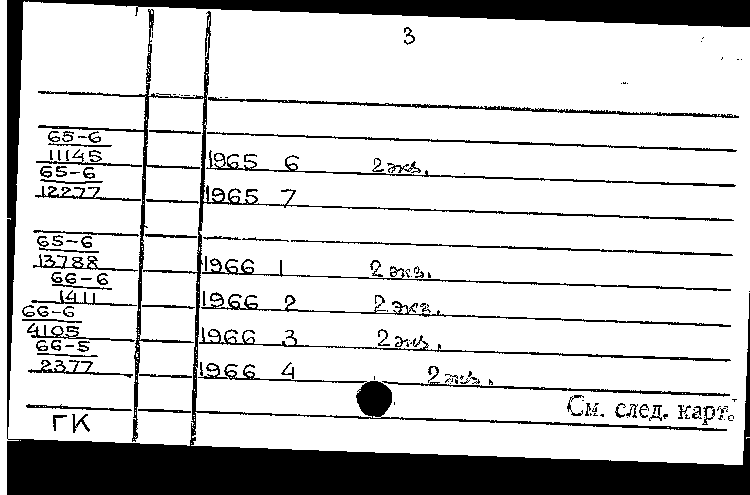 3
65-6
11145 1965 6 2 экз.
65-6
12277 1965 7
65-6
13788 1966 1 2 экз.
66-6
1411 1966 2 2 экз.
66-6
4105 1966 3 2 экз.
66-5
2377 1966 4 2 экз.
См. след. карт.
ГК